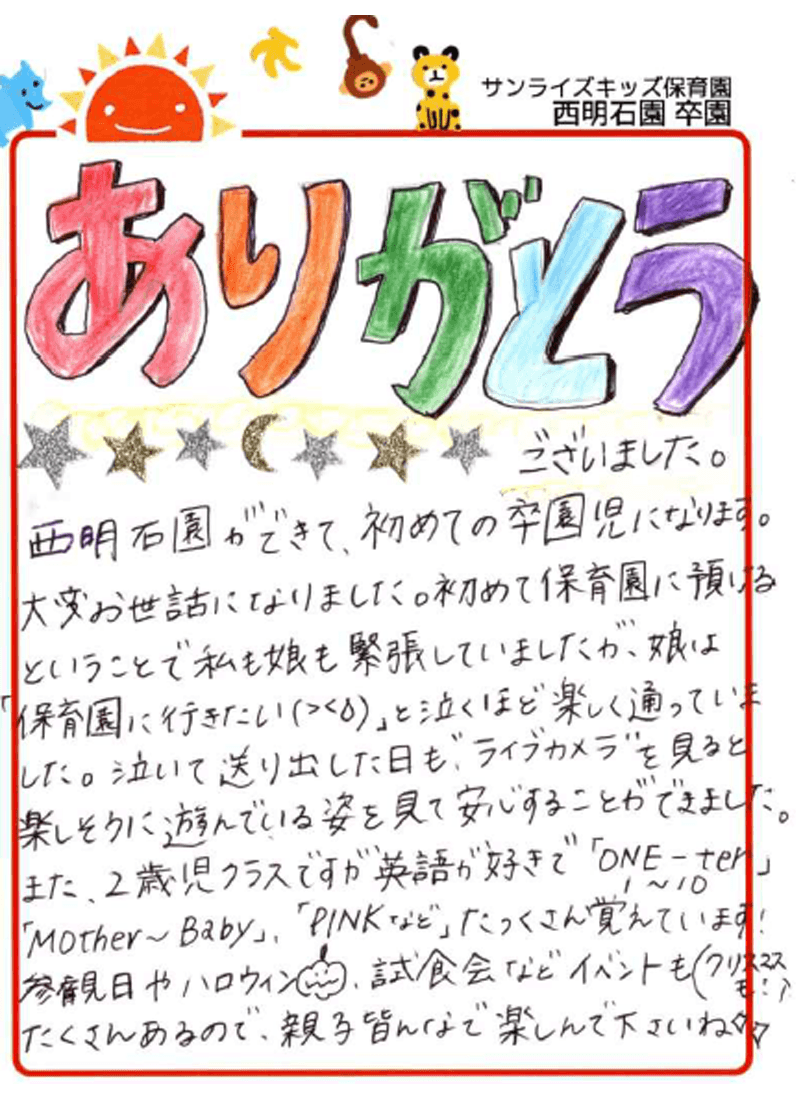 サンライズキッズ保育園
西明石園 卒園
ありがとう
ございました。
西明石園ができて、初めての卒園児になります。
大変お世話になりました。初めて保育園に預ける
ということで私も娘も緊張していましたが、娘は
「保育園に行きたい(><δ)」と泣くほど楽しく通っていま
した。泣いて送り出した日も、ライブカメラを見ると
楽しそうに遊んでいる姿を見て安心することができました。
また、2歳児クラスですが英語が好きで「ONE-ten」
1~10
「MOther~Baby」、「PINKなど」たっくさん覚えています!
参観日やハロウィン、試食会などイベントも(クリスマス
も!)
たくさんあるので、親子皆んなで楽しんで下さいね